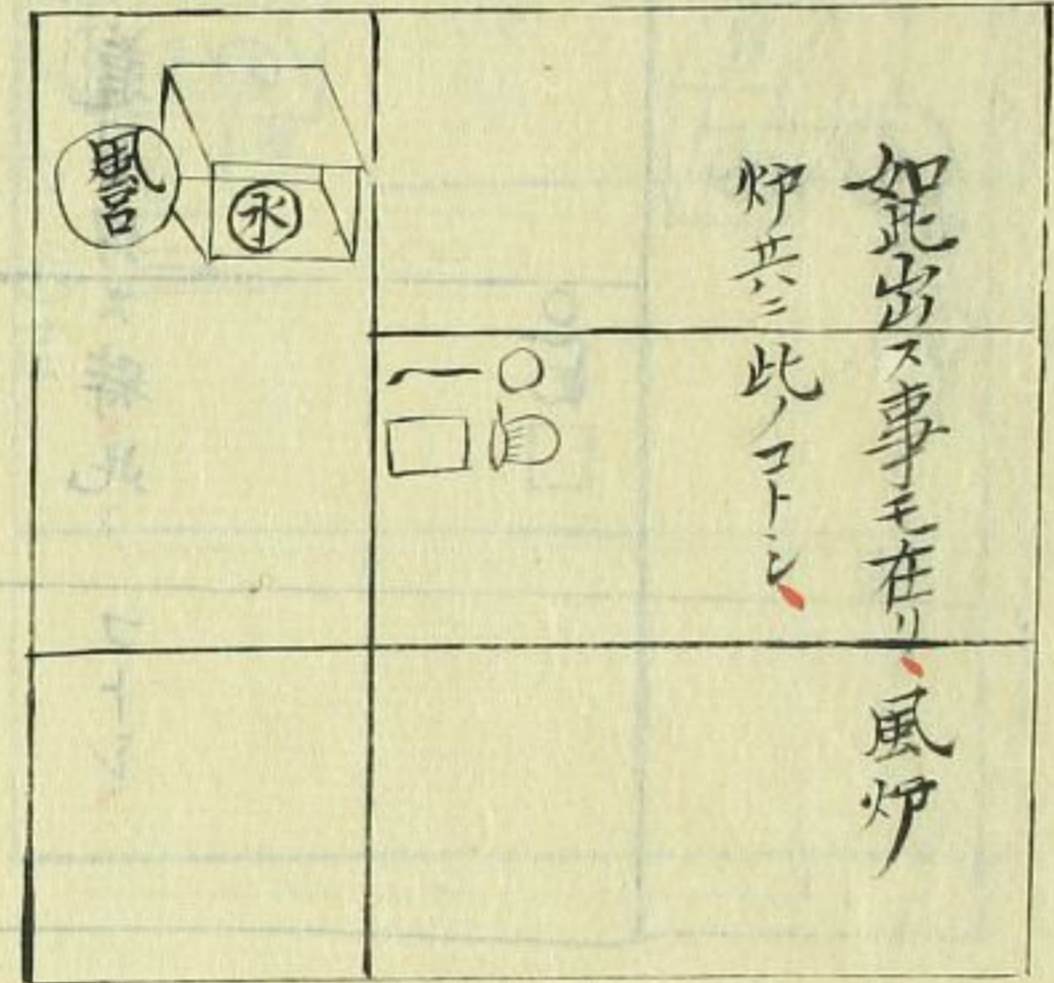 如此出ス事モ在リ、風炉
炉共ニ此ノコトシ、
水
風呂